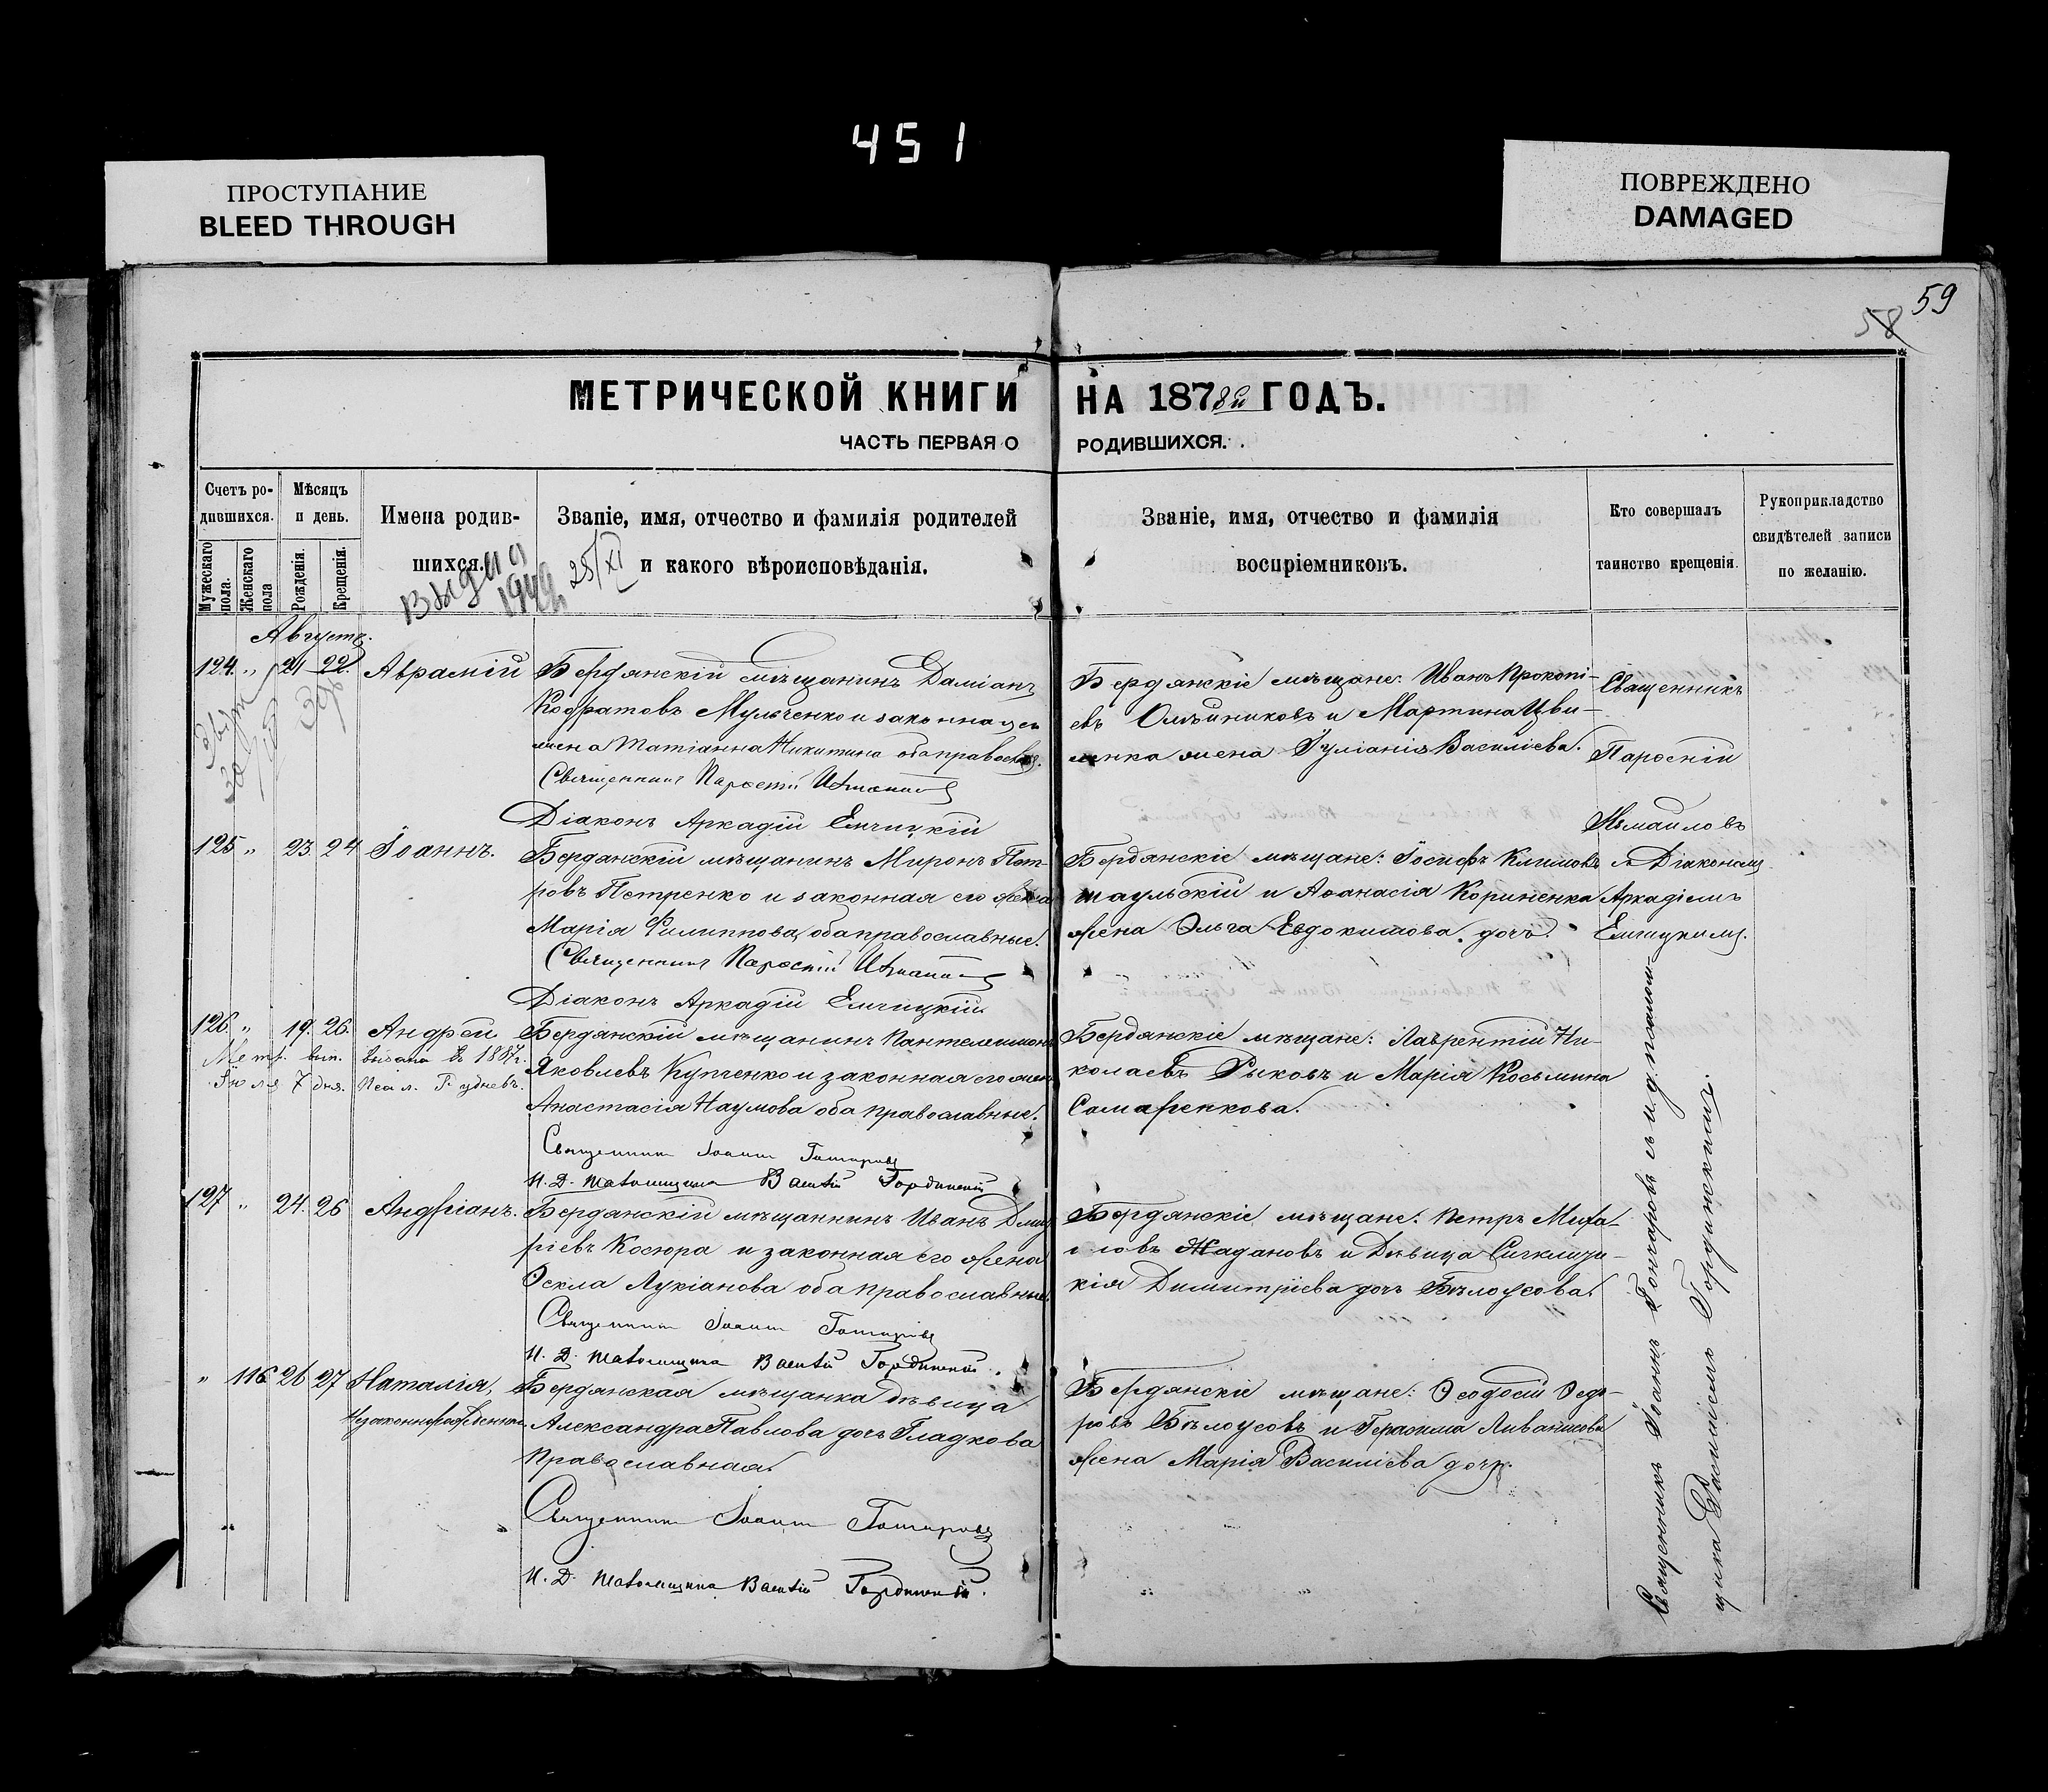 451
ПРОСТУПАНИЕ
BLEED THROUGH
ПОВРЕЖДЕНО
DAMAGED
59
58
МЕТРИЧЕСКОЙ КНИГИ НА 1878й ГОДЪ.
ЧАСТЬ ПЕРВАЯ О РОДИВШИХСЯ.
Счетъ ро-
дившихся.
Мужескаго пола.
Женскаго пола
Мѣсяцъ
и день.
Рожденія.
Крещенія.
Имена родив-
шихся.
Званіе, имя, отчество и фамилія родителей
и какого вѣроисповѣданія.
Званіе, имя, отчество и фамилія
воспріемниковъ.
Кто совершалъ
таинство крещенія.
Рукоприкладство
свидѣтелей записи
по желанію.
выдана
25/XI
Августъ.
124. „ 21 22 Аврамій
Бердянскій мѣщанинъ Даміанъ
Кодратовъ Мульченко и законная его
жена Татіанна Никитина оба правосл.
Священникъ Парѳеній Измаиловъ
Діаконъ Аркадій Емчицкій
Бердянскіе мѣщане: Иванъ Прокопі-
евъ Олѣйниковъ и Мартина Цви-
жена Іуліанія Василіева.
Священникъ
Парѳеній
Измаиловъ
съ Діакономъ
Аркадіемъ
Емчицкимъ.
125 „ 23. 24 Іоаннъ.
Бердянскій мѣщанинъ Миронъ Пет-
ровъ Петренко и законная его жена
Марія Филиппова, оба православные.
Священникъ Парѳеній Измаиловъ
Діаконъ Аркадій Емчицкій
Бердянскіе мѣщане: Іосифъ Климовъ
и Аѳанасія Кориненка
жена Ольга Евдокимова дочь.
126. „ 19. 26. Андрей
Метр. вып. высана въ 1887г.
Іюля 7 дня. Псал. Рудневъ.
Бердянскій мѣщанинъ Пантелеимонъ
Яковлевъ Купченко и законная его жена
Анастасія Наумова оба православные.
Священникъ Іоаннъ Гончаровъ
И. Д. Псаломщика Василій Гординскій
Бердянскіе мѣщане: Лаврентій Ни-
колаевъ Рыковъ и Марія Косьмина
Самаренкова.
127 „ 24. 26 Андріанъ.
Бердянскій мѣщанинъ Иванъ Дмит-
ріевъ Косюра и законная его жена
Ѳекла Лукіанова оба православные.
Священникъ Іоаннъ Гончаровъ
И. Д. Псаломщика Василій Гординскій.
Бердянскіе мѣщане: Петръ Миха-
иловъ Жадановъ и дѣвица
Димитріева дочь Бѣлоусова.
„ 116 26 27 Наталія,
Незаконнорожденная
Бердянская мѣщанка дѣвица
Александра Павлова дочь Гладкова
Православная.
Священникъ Іоаннъ Гончаровъ
И. Д. Псаломщика Василій Гординскій.
Бердянскіе мѣщане: Ѳеодосій Ѳедо-
ровъ Бѣлоусовъ и Герасима Ливанисова
жена Марія Василіева дочь.
Священникъ Іоаннъ Гончаровъ съ и. д. псалом-
щика Василіемъ Гординскимъ.